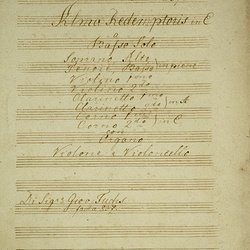 Alma Redemptoris in C
a
Basso Solo
Soprano, Alto
Tenore, Basso
Violino 1mo
Violino 2do
Clarinetto 1mo
Clarinetto 2do in A
Corno 1mo
Corno 2do in C
con
Organo
Violone e Violoncello
Di Sigre Giov. Fuchs